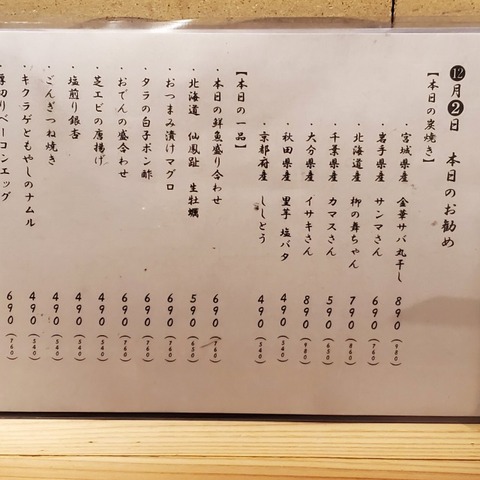 12月2日　本日のお勧め
【本日の炭焼き】
・宮城県産　金華サバ丸干し　890（980）
・岩手県産　サンマさん　690（760）
・北海道産　柳の舞ちゃん　790（860）
・千葉県産　カマスさん　590（650）
・大分県産　イサキさん　890（980）
・秋田県産　里芋　塩バタ　490（540）
・京都府産　ししとう　490（540）
【本日の一品】
・本日の鮮魚盛り合わせ　690（760）
・北海道　仙鳳趾　生牡蠣　590（650）
・おつまみ漬けマグロ　690（760）
・タラの白子ポン酢　690（760）
・おでんの盛合わせ　690（760）
・芝エビの唐揚げ　490（540）
・塩煎り銀杏　490（540）
・ごんぎつね焼き　490（540）
・キクラゲともやしのナムル　490（540）
厚切りベーコンエッグ　690（760）